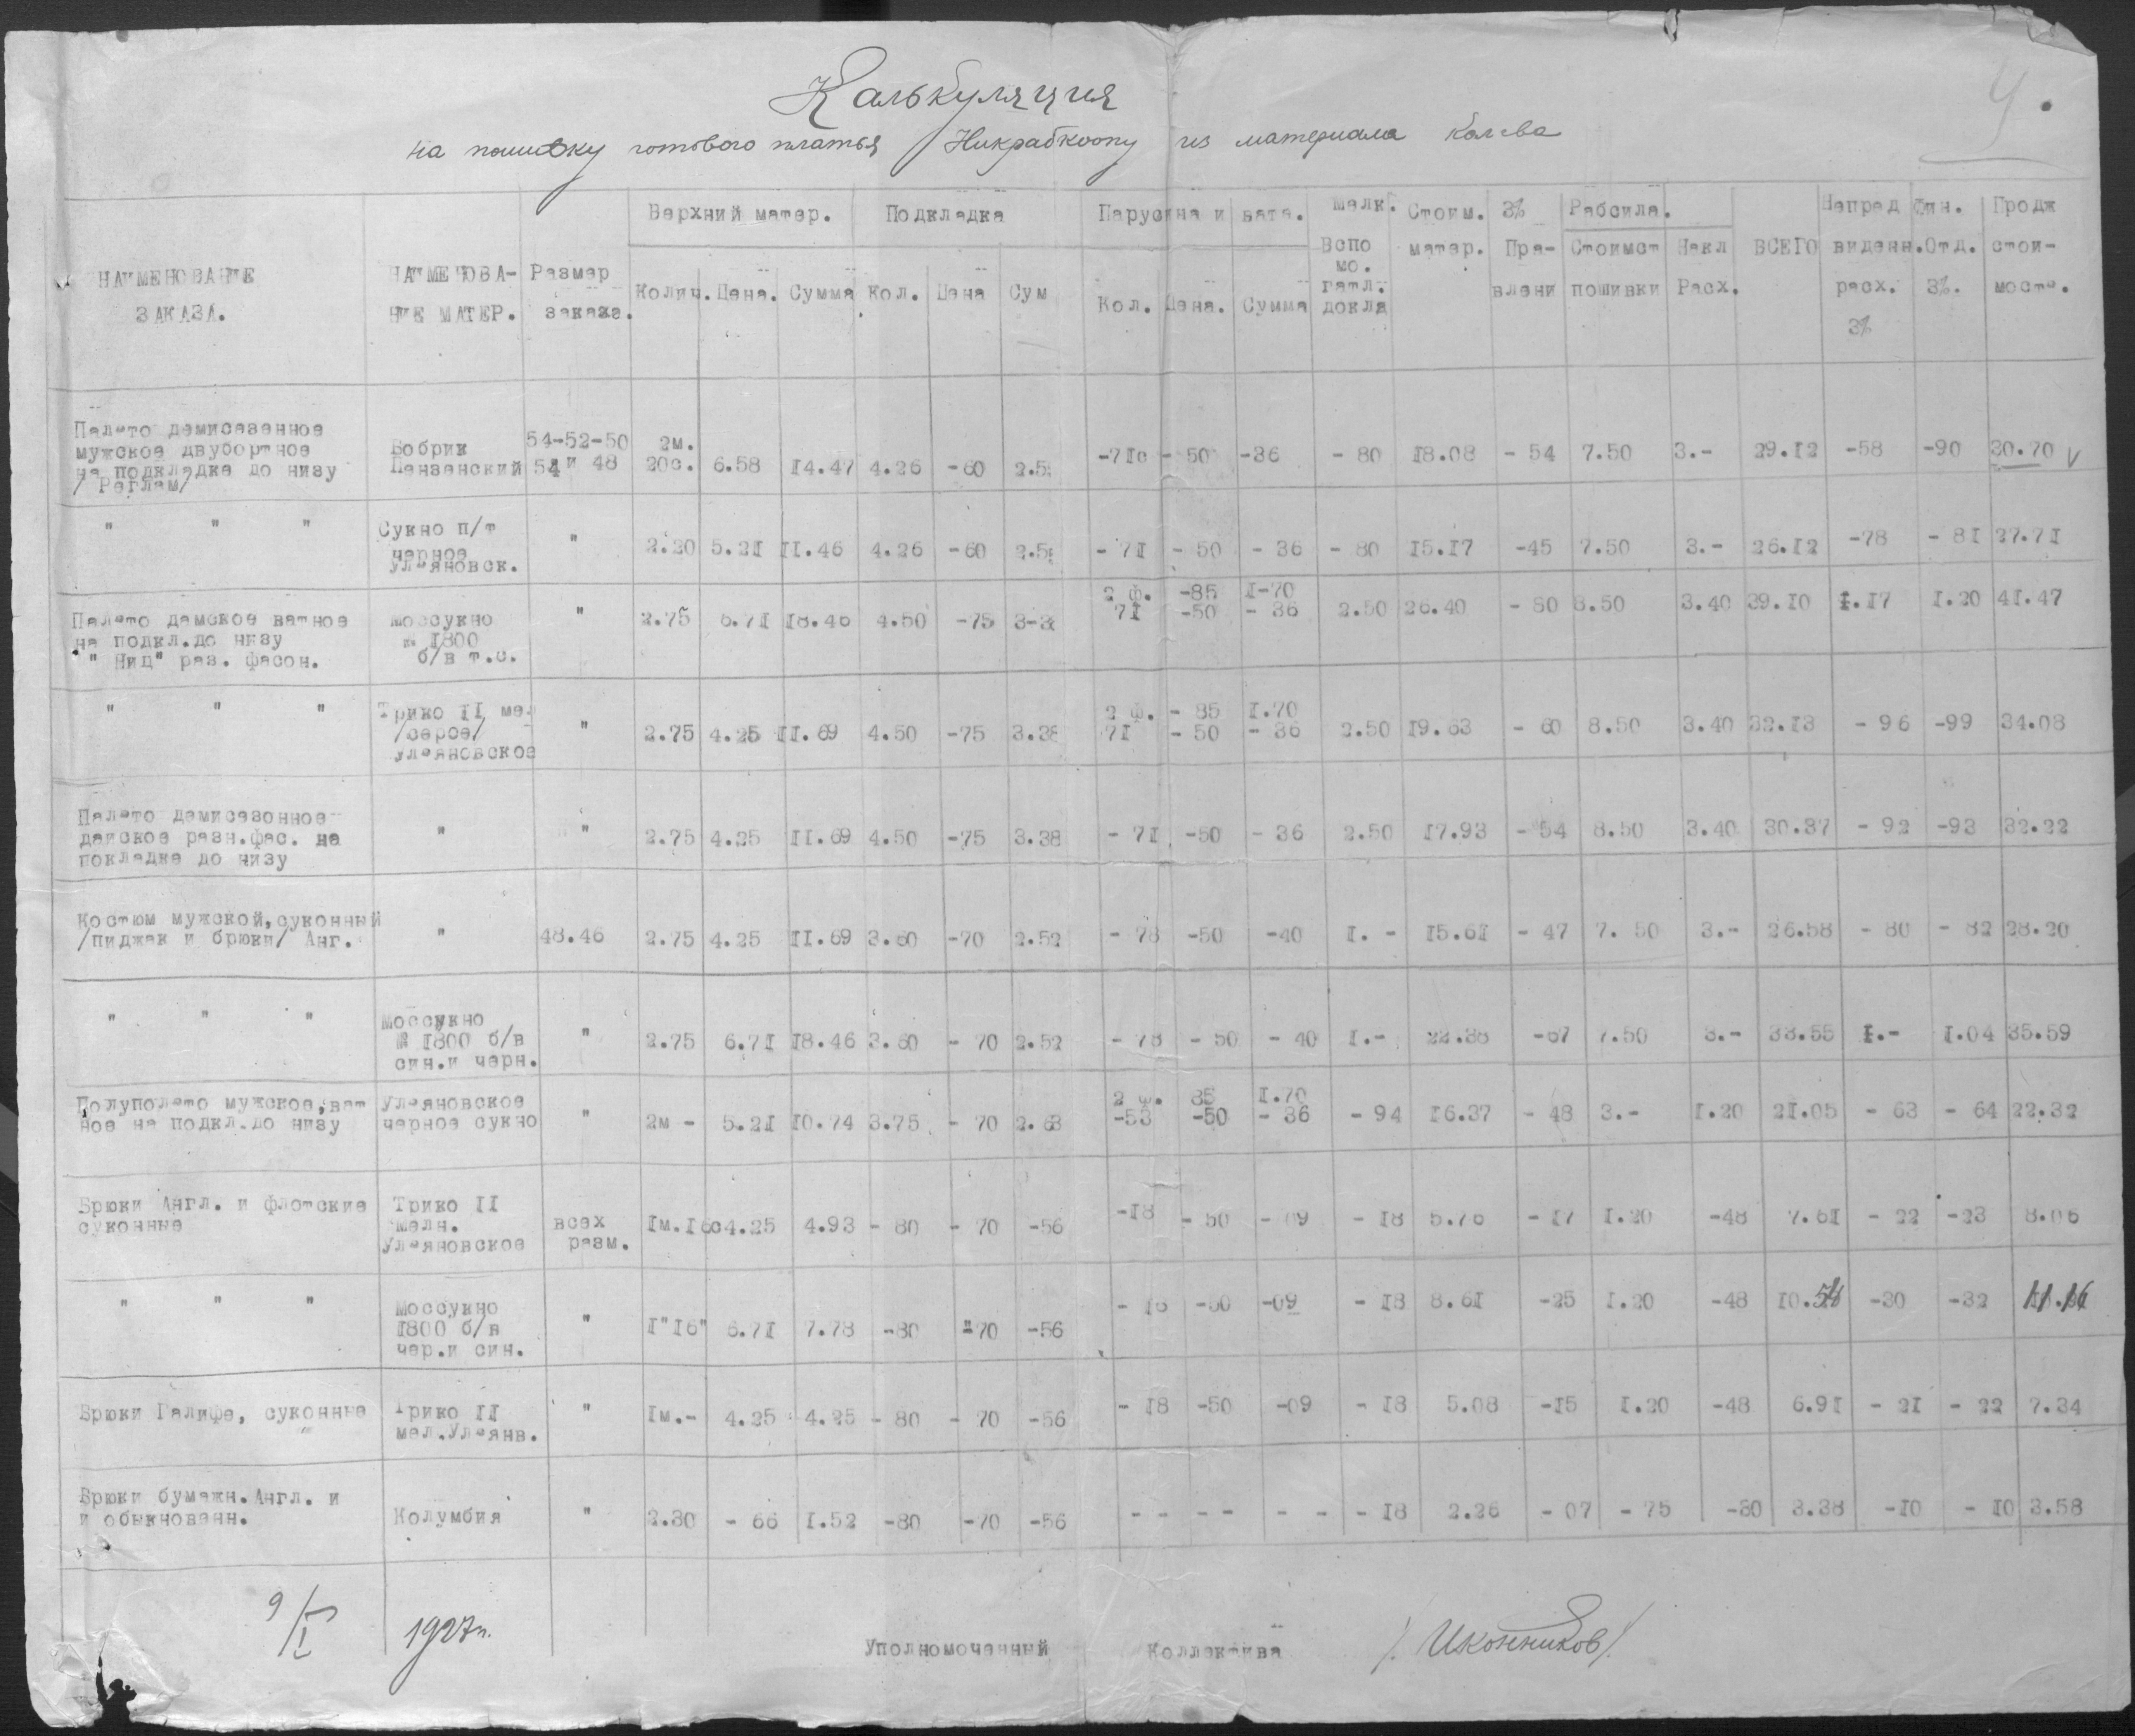 Калькуляция
на пошивку готового платья Никрабкоопу из материала Кол-ва
НАИМЕНОВАНИЕ ЗАКАЗА. НАИМЕНОВА- НИЕ МАТЕР. Размер заказа. Верхний матер. Колич. Цена. Сумма Подкладка Кол. Цена Сум Парусина и вата. Кол. Цена. Сумма Мелк. Вспо мо. гатл. докла Стоим. матер. 3% Пра- влени Рабсила. Стоимст пошивки Накл Расх. ВСЕГО Непред виденн. расх. 3% Фин. Отд. 3%. Продж стои- мость.
Пальто демисезенное
мужское двубортное
на подкладке до низу
/ Реглам/
Бобрик
Пензенский
54-52-50
54 и 48
2м.
20с. 6.58 14.47 4.26 -60 2.5 -71с - 50 -36 - 80 18.08 - 54 7.50 3.- 29.12 -58 -90 30.70 V
" " "
Сукно п/т
черное
ульяновск.
" 2.20 5.21 11.46 4.26 -60 2.5 - 71 - 50 - 36 - 80 15.17 -45 7.50 3.- 26.12 -78 - 81 27.71
Пальто дамское ватное
на подкл.до низу
" Ниц" раз. фасон.
моссукно
№ 1800
б/в т.с.
" 2.75 6.71 18.46 4.50 -75 3-3
2 ф. -85 1-70
71 -50 - 36
2.50 26.40 - 80 8.50 3.40 39.10 1.17 1.20 41.47
" " "
Трико II ме.
/серое/
ульяновское
" 2.75 4.25 11.69 4.50 -75 3.38
2 ф. - 85 1.70
71 - 50 - 36
2.50 19.63 - 60 8.50 3.40 32.13 - 96 -99 34.08
Пальто демисезонное
дамское разн.фас. на
покладке до низу
" " 2.75 4.25 11.69 4.50 -75 3.38 - 71 -50 - 36 2.50 17.93 - 54 8.50 3.40 30.37 - 92 -93 32.22
Костюм мужской,суконный
/пиджак и брюки/ Анг.
" 48.46 2.75 4.25 11.69 3.60 -70 2.52 - 78 -50 -40 1. - 15.61 - 47 7. 50 3.- 26.58 - 80 - 82 28.20
" " "
Моссукно
№ 1800 б/в
син.и черн.
" 2.75 6.71 18.46 3.60 - 70 2.52 - 78 - 50 - 40 1.- 22.38 -67 7.50 3.- 33.55 1.- 1.04 35.59
Полупольто мужское,ват
ное на подкл.до низу
Ульяновское
черное сукно
" 2м - 5.21 10.74 3.75 - 70 2.63
2 ф. 85 1.70
-53 -50 - 36
- 94 16.37 - 48 3.- 1.20 21.05 - 63 - 64 22.32
Брюки Англ. и флотские
суконные
Трико II
мелн.
Ульяновское
всех
разм.
1м.16с 4.25 4.93 - 80 - 70 -56 -18 - 50 - 09 - 18 5.76 - 17 1.20 -48 7.61 - 22 -23 8.06
" " "
Моссукно
1800 б/в
чер.и син.
" 1"16" 6.71 7.78 -80 -70 -56 - 18 -50 -09 - 18 8.61 -25 1.20 -48 10.54 -30 -32 11.16
Брюки Галифе, суконные
Трико II
мел.Ульянв.
" 1м.- 4.25 4.25 - 80 - 70 -56 - 18 -50 -09 - 18 5.08 -15 1.20 -48 6.91 - 21 - 22 7.34
Брюки бумажн.Англ. и
и обыкнованн.
Колумбия
" 2.30 - 66 1.52 -80 -70 -56 - - - - - - - 18 2.26 - 07 - 75 -30 3.38 -10 - 10 3.58
9/I 1927г.
Уполномоченный Коллектива /Иконников/.